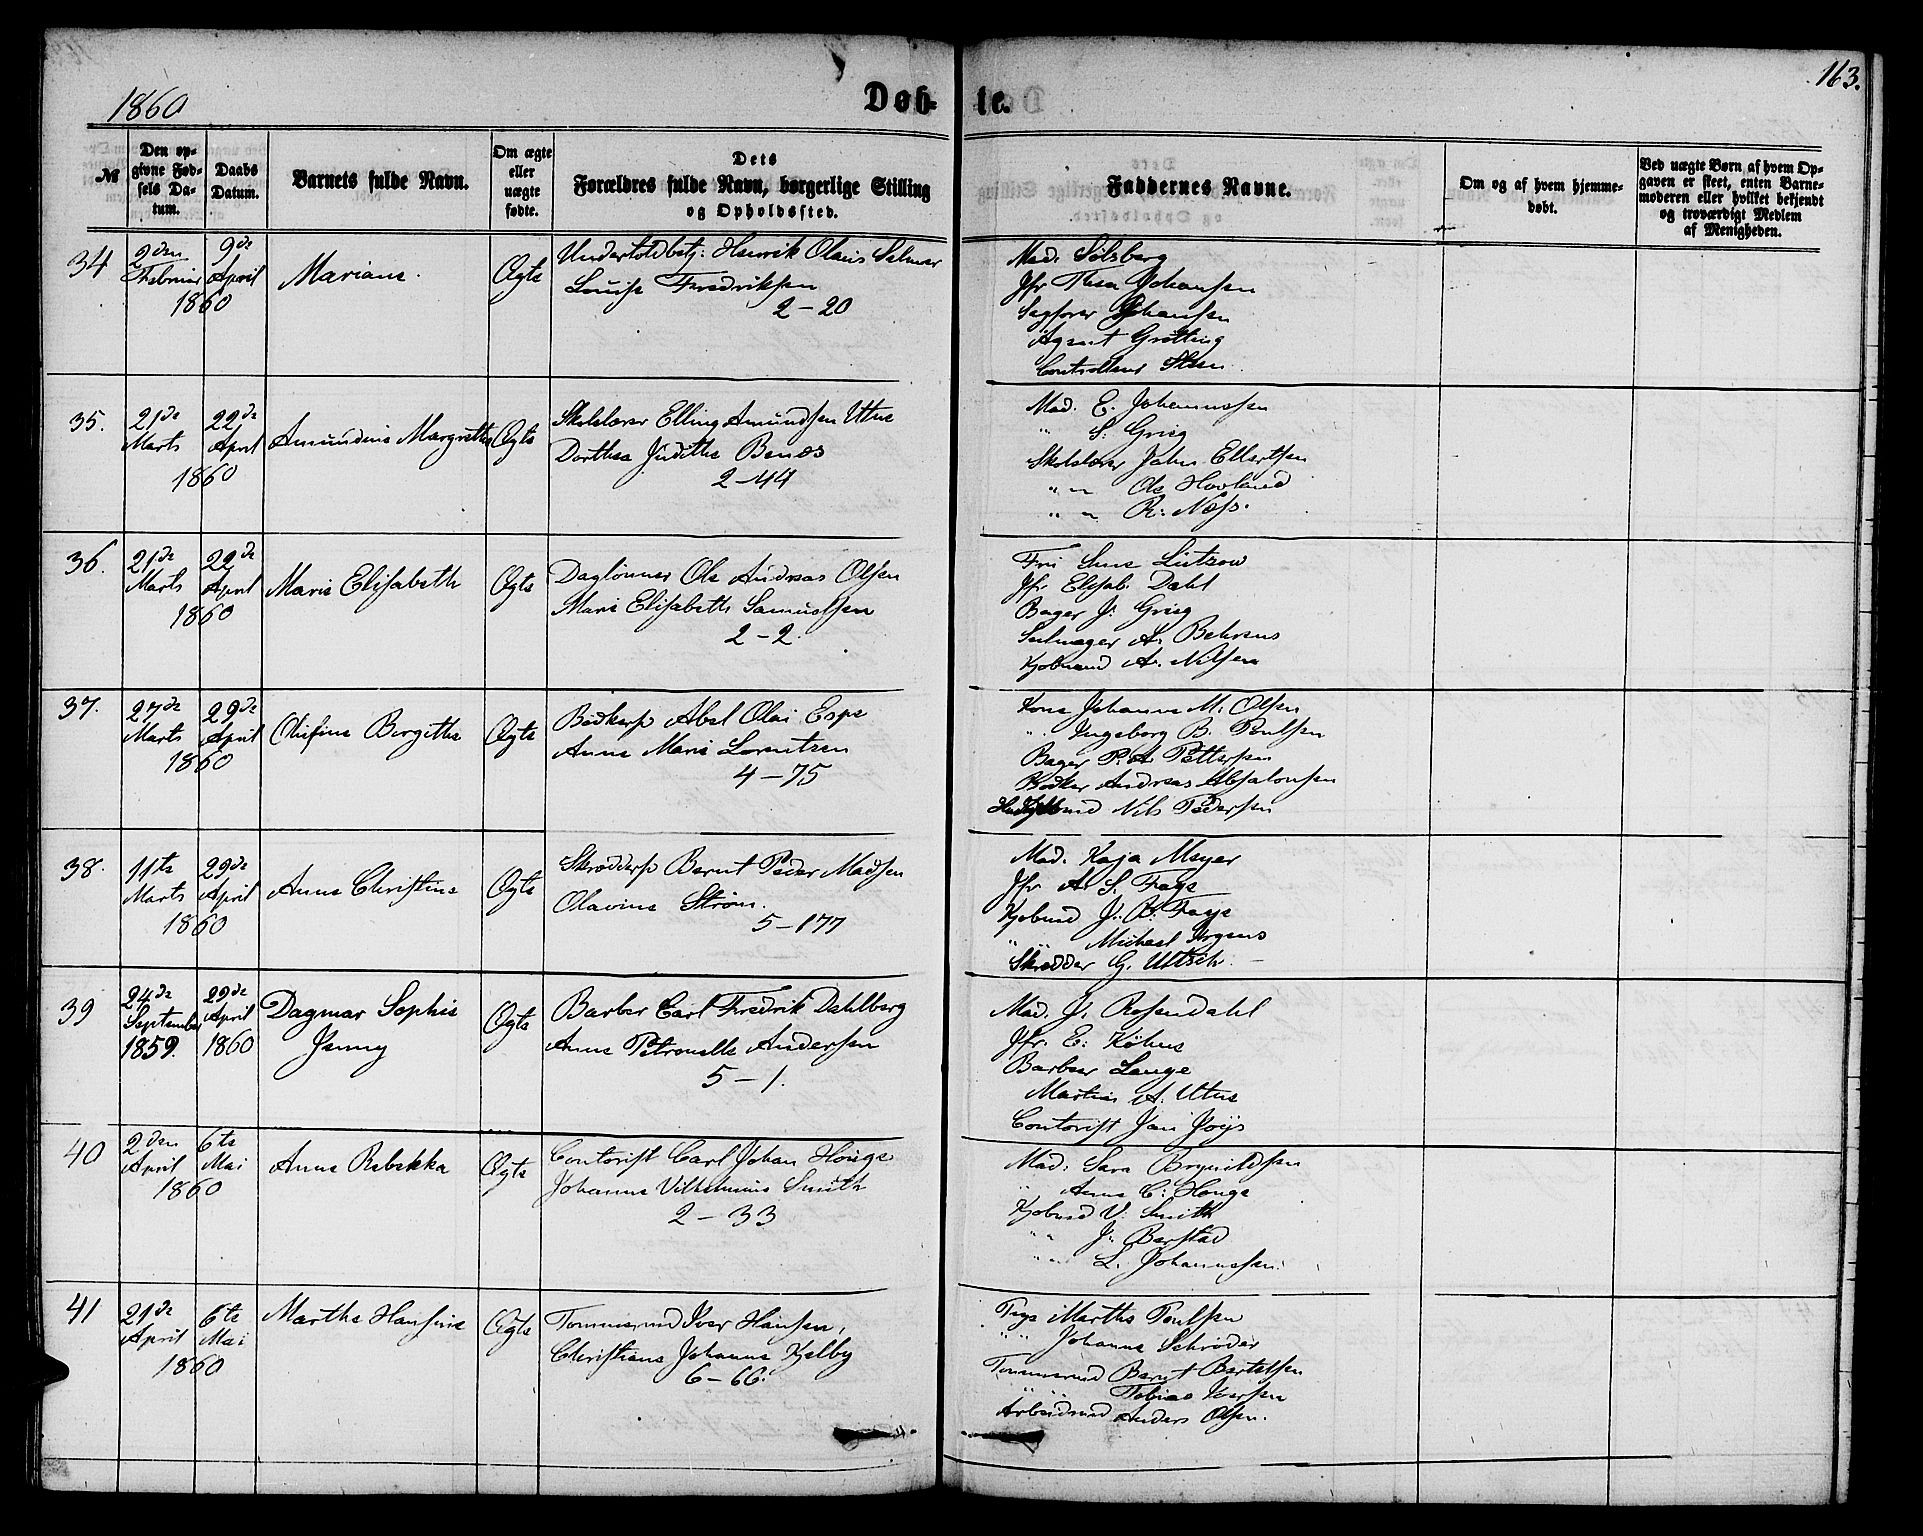 163.
1860
Døbte.
№
Den opgivne Fødsels Datum.
Daabs Datum.
Barnets fulde Navn.
Om ægte eller uægte fødte.
Dets Forældres fulde Navn, borgerlige Stilling og Opholdssted.
Faddernes Navne.
Om og af hvem hjemmedøbt.
Ved uægte Børn af hvem Opgaven er skeet, enten Barnemoderen eller hvilket bekjendt og troværdigt Medlem af Menigheden.
34
2den Februar
9de April
1860
Mariane.
Ægte
Undertoldbetj: Henrik Olaus Selmer
Louise Fredriksen
2-20
Mad: Solsberg
Jfr Thea Johansen
Sagfører Johansen
Agent Grøtting
Controlleur Steen
35.
21de Marts
22de April
1860
Amundine Margrethe
Ægte
Skolelærer Elling Amundsen Utne
Dorthea Judithe Benes
2-44
Mad. E. Johannessen
" S. Grieg
Skolelærer John Ellertsen
" " Ole Hovland
" " R. Næss.
36.
21de Marts
22de April
1860
Marie Elisabeth
Ægte
Daglønner Ole Andreas Olsen
Marie Elisabeth Samuelsen
2-2.
Fru Lützow
Jfr Elisab. Dahl
Bager J. Grieg
Seilmager A. Behrens
Kjøbmand A. Nilsen
37.
27de Marts
29de April
1860
Olufine Birgitte
Ægte
Bødkers. Abel Olai Espe
Anne Marie Lorentzen
4-75
Kone Johanne M. Olsen
" Ingeborg B. Poulsen
Bager P. A. Pettersen
Bødker Andreas Absalonsen
Nils Pedersen
38.
11te Marts
29de April
1860
Anna Christine
Ægte
Skrædders. Bernt Peder Madsen
Olavine Strøm.
5-177
Mad. Kaja Meyer
Jfr A. S. Faye
Kjøbmd J. B. Faye
" " Michael Krogens
Skrædder G. Uttsch.
39
24de September 1859.
29de April 1860
Dagmar Sophie
Jenny
Ægte
Barber Carl Fredrik Dahlberg
Anne Petronelle Andersen
5-1.
Mad. J. Rosendahl
Jfr. E. Køhne
Barber Lange
Martin A. Utne
Contorist Jan Joys
40
2den April
6te Mai
1860
Anna Rebekka
Ægte
Contorist Carl Johan Houge
Johanne Vilhelmine Smith
2-33
Mad: Sara Brynildsen
" Anne C: Houge
Kjøbmd V. Smith
" " J. Berstad
" " L. Johannessen.
41
21de April
6te Mai
1860
Marthe Hansine
Ægte
Tømmermd Iver Hansen,
Christiane Johanne Kjelby
6-66.
Pige Marthe Poulsen
" " Johanne Schrøder
Tømmermd Bernt Bertelsen
" " Tobias Iversen
Arbeidsmd Anders Olsen.